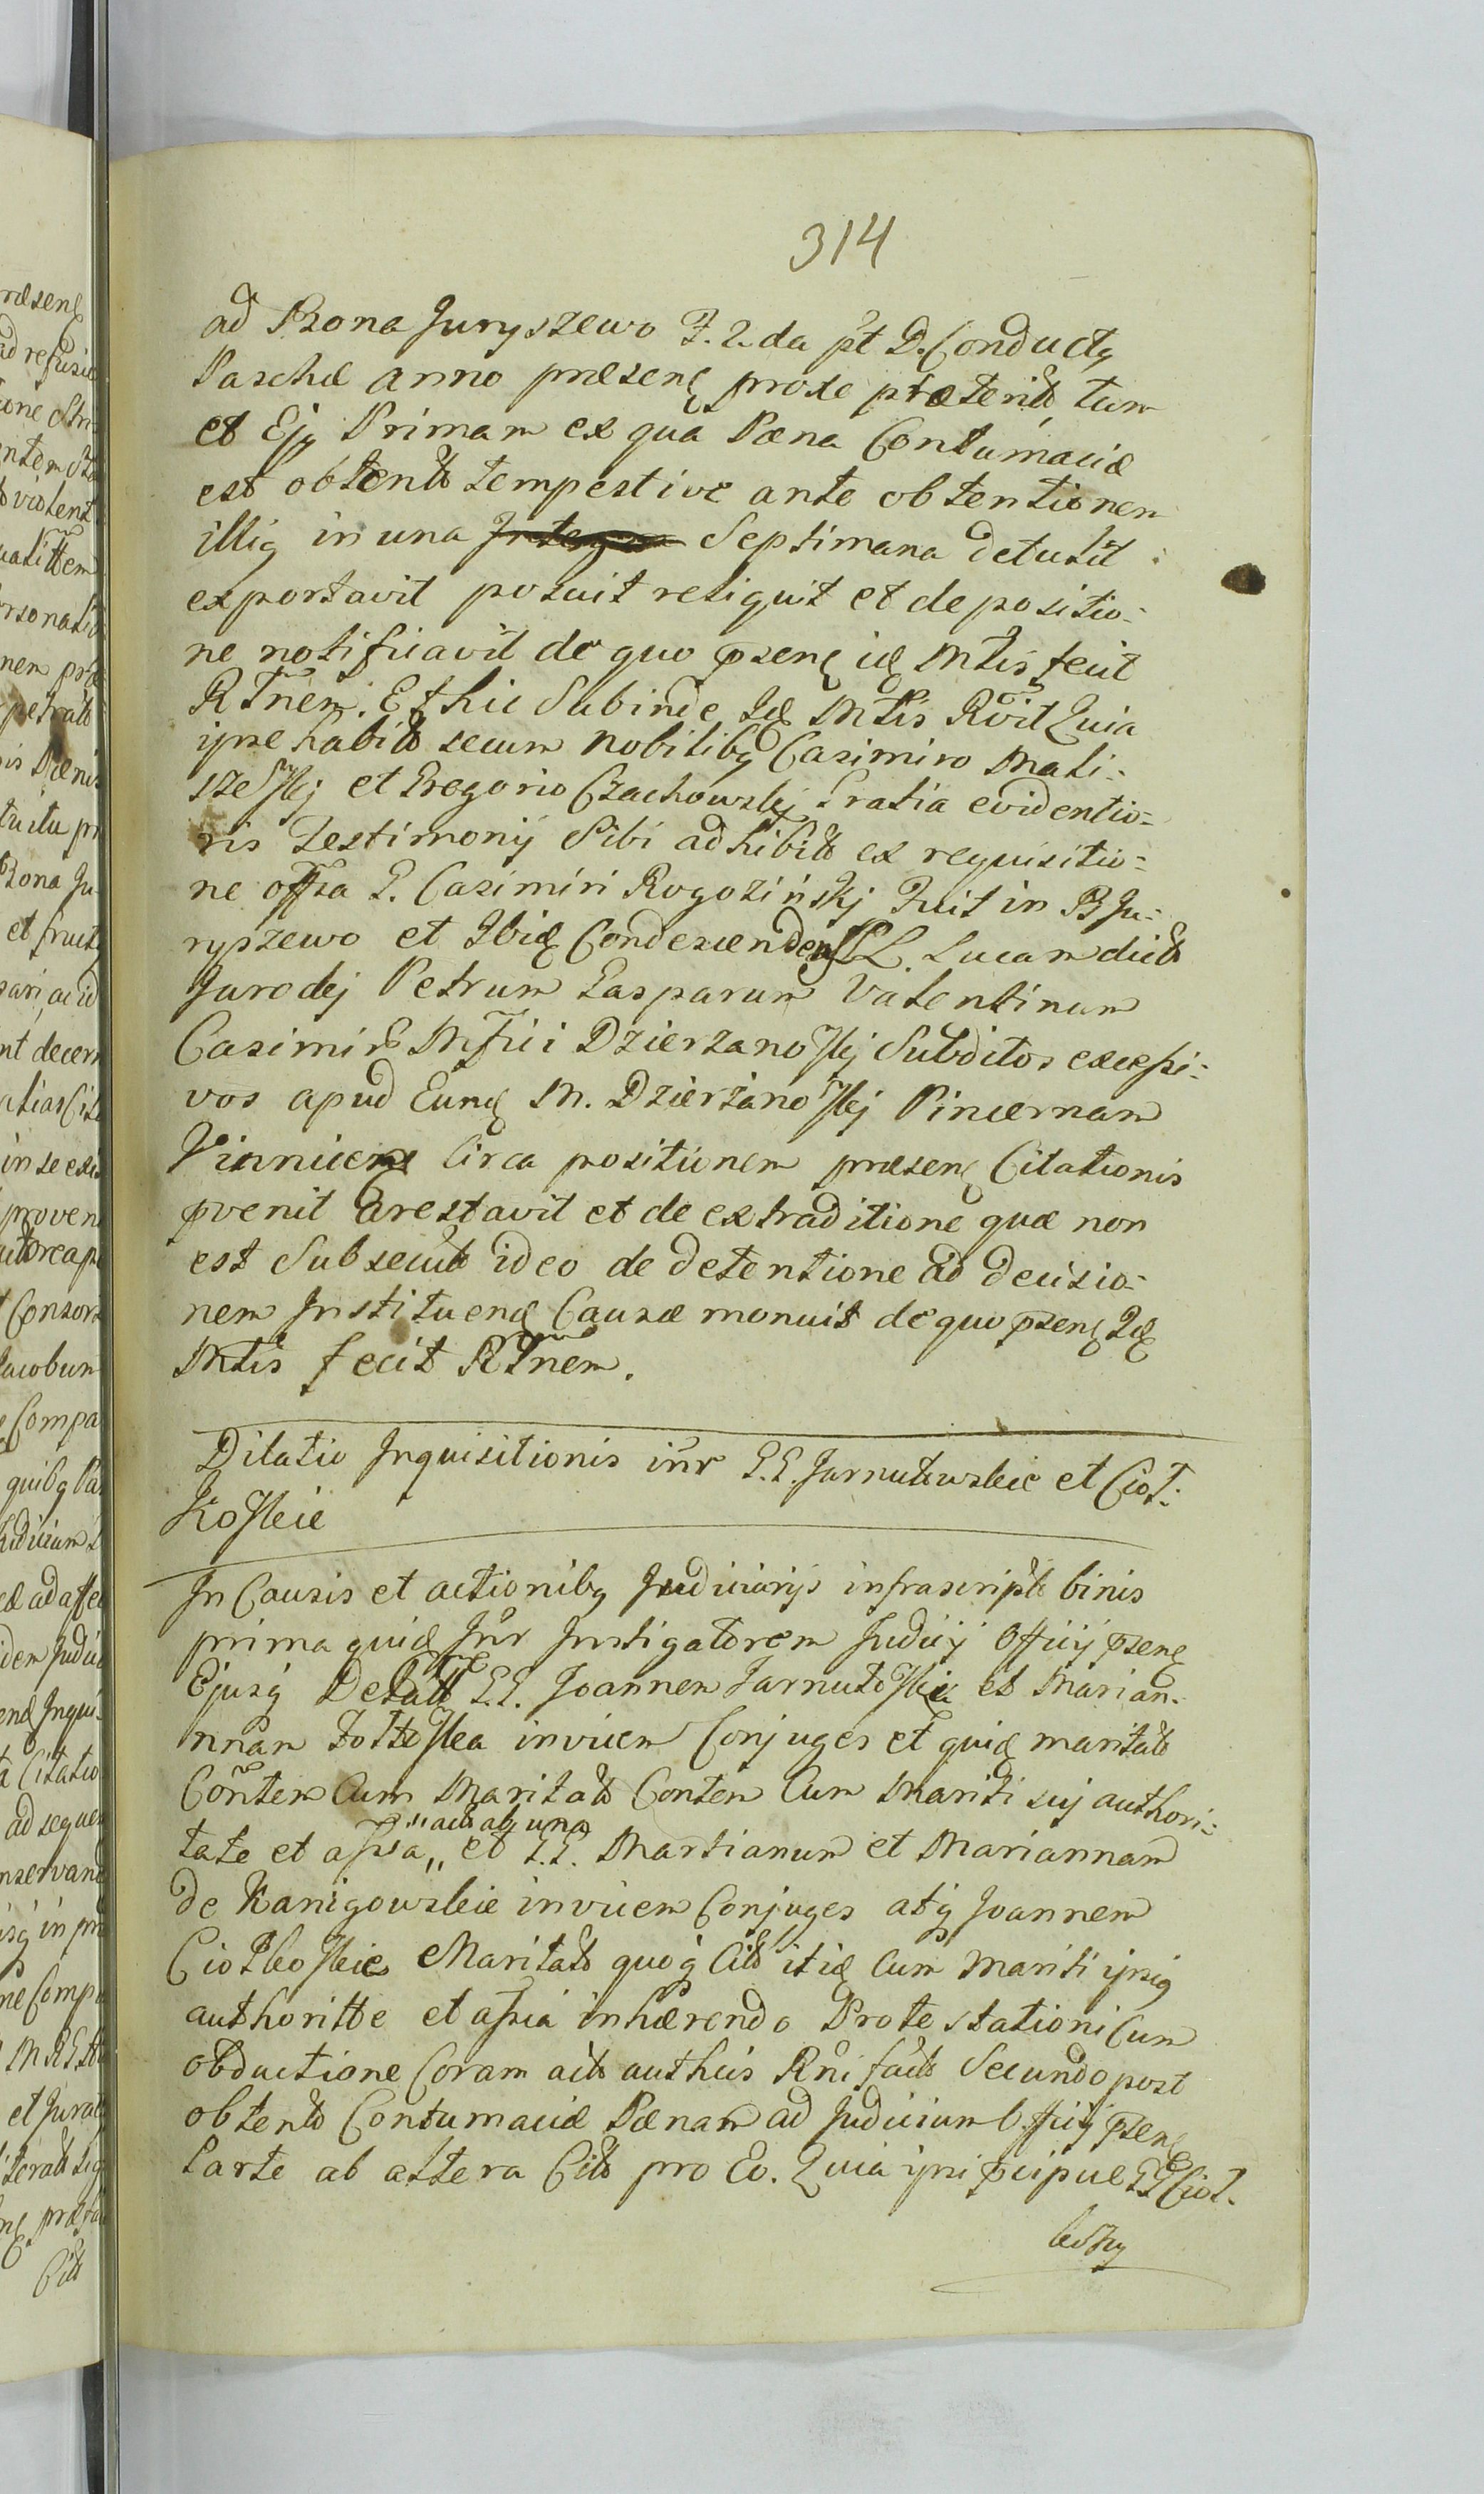 314
ad Bona Juryszewo F. 2da pt D. Conductꝫ
Paschæ anno præsenꝭ proxe præterit tum
et Ejꝫ Primam ex qua Pæna Contumaciæ
est obtent tempestive ante obtentionem
illiꝫ in una Septimana detulit
exportavit posuit reliquit et de positio-
ne notificavit de quo pꝛsenꝭ idꝭ Mtis fecit
Rtnem. Et hic Subinde Idꝭ Mtis Rvit Quia
ipse habit secum Nobilibꝫ Casimiro Mali-
szewskj et Gregorio Czachowskj Gratia evidentio-
ris Testimonij Sibi adhibit ex requisitio-
ne offsa G. Casimiri Rogozińskj Fuit in B Ju-
ryszewo et Ibidꝭ Condescendens LL. Lucam dict
Jurodej Petrum Gasparum Valentinum
Casimir Mfici Dzierzanoskj Subditos excessi-
vos apud Eundꝭ M. Dzierżanoskj Pincernam
Vinnicenꝭ Circa positionem præsenꝭ Citationis
pvenit arestavit et de extraditione quæ non
est Subsecut ideo de detentione ad decisio-
nem Instituendꝭ Causæ monuit de quo pꝛsenꝭ Idꝭ
Mtis fecit Rtnem.
Dilatio Inquisitionis inr G.G. Jarnutowskie et Ciot-
koskie
In Causis et actionibꝫ Judiciarijs infrascript binis
prima quidꝭ Inr Instigatorem Judicij Officij pꝛsenꝭ
Ejusqꝫ Delat G.G. Joannem Jarnutoskie et Marian-
nnam invicem Conjuges et quidꝭ maritat
Contem Cum Maritat Contem Cum Mariti sui authori-
tate et assa,, et G.G. Martianum et Mariannam
,, act ab una
de Kanigowskie invicem Conjuges atqꝫ Joannem
Ciotkoskie Maritat quoqꝫ Cit itidꝭ Cum Mariti ipsiꝫ
authoritte et assia inhærendo Protestationi Cum
obductione Coram act authcis Rni fact Secundo post
obtent Contumaciæ Pænam ad Judicium Officij pꝛsenꝭ
Parte ab altera Cit pro Eo. Quia ipsi pcipue GG Ciot-
koscy